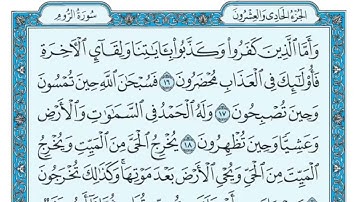 الجزء الحادي والعشرون سورة الروم
وَأَمَّا ٱلَّذِينَ كَفَرُواْ وَكَذَّبُواْ بِـَٔايَٰتِنَا وَلِقَآيِٕ ٱلْـَٔاخِرَةِ
فَأُوْلَٰٓئِكَ فِى ٱلْعَذَابِ مُحْضَرُونَ ١٦ فَسُبْحَٰنَ ٱللَّهِ حِينَ تُمْسُونَ
وَحِينَ تُصْبِحُونَ ١٧ وَلَهُ ٱلْحَمْدُ فِى ٱلسَّمَٰوَٰتِ وَٱلْأَرْضِ
وَعَشِيًّا وَحِينَ تُظْهِرُونَ ١٨ يُخْرِجُ ٱلْحَىَّ مِنَ ٱلْمَيِّتِ وَيُخْرِجُ
ٱلْمَيِّتَ مِنَ ٱلْحَىِّ وَيُحْىِ ٱلْأَرْضَ بَعْدَ مَوْتِهَا وَكَذَٰلِكَ تُخْرَجُونَ